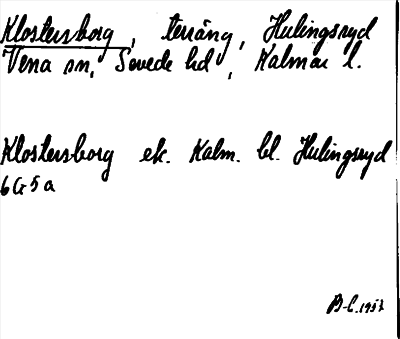 Klostersborg, terräng, Hulingsryd
Vena sn, Sevede hd, Kalmar l.
Klostersborg ek. Kalm. bl. Hulingsryd
6G5a
B-C. 1957